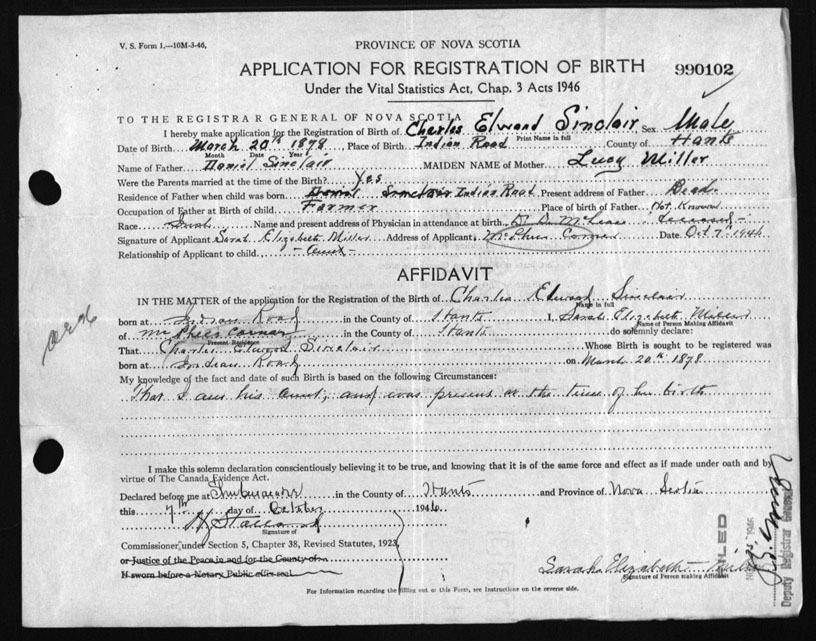 V. S. Form 1.—10M-3-46,
PROVINCE OF NOVA SCOTIA
APPLICATION FOR REGISTRATION OF BIRTH
990102
Under the Vital Statistics Act, Chap. 3 Acts 1946
TO THE REGISTRAR GENERAL OF NOVA SCOTIA
I hereby make application for the Registration of Birth of Charles Elwood Sinclair Sex Male
Print Name in full
Date of Birth March 20th 1878 Place of Birth Indian Road County of Hants
Month Date Year
Name of Father Daniel Sinclair MAIDEN NAME of Mother Lucy Miller
Were the Parents married at the time of the Birth? Yes
Residence of Father when child was born Daniel Sinclair Indian Road Present address of Father Dead.
Occupation of Father at Birth of child Farmer Place of birth of Father Not Known
Race Name and present address of Physician in attendance at birth Dr D. McLean deceased
Signature of Applicant Sarah Elizabeth Miller Address of Applicant McPhees Corner Date Oct 7th 1946
Relationship of Applicant to child - Aunt -
AFFIDAVIT
IN THE MATTER of the application for the Registration of the Birth of Charles Elwood Sinclair
Name in full
born at Indian Road in the County of Hants I, Sarah Elizabeth Miller
Name of Person Making Affidavit
of McPhees Corner in the County of Hants do solemnly declare:
Present Residence
That Charles Elwood Sinclair Whose Birth is sought to be registered was
born at Indian Road on March 20th 1878
My knowledge of the fact and date of such Birth is based on the following Circumstances:
That I am his Aunt, and was present at the time of his birth
I make this solemn declaration conscientiously believing it to be true, and knowing that it is of the same force and effect as if made under oath and by
virtue of The Canada Evidence Act.
Declared before me at Shubenacadie in the County of Hants and Province of Nova Scotia
this 7th day of October 1946
Signature of
Commissioner, under Section 5, Chapter 38, Revised Statutes, 1923,
or Justice of the Peace in and for the County of
If sworn before a Notary Public affix seal
Sarah Elizabeth Miller
Signature of Person making Affidavit
For Information regarding the filling out of this Form, see Instructions on the reverse side.
1946
Deputy Registrar General